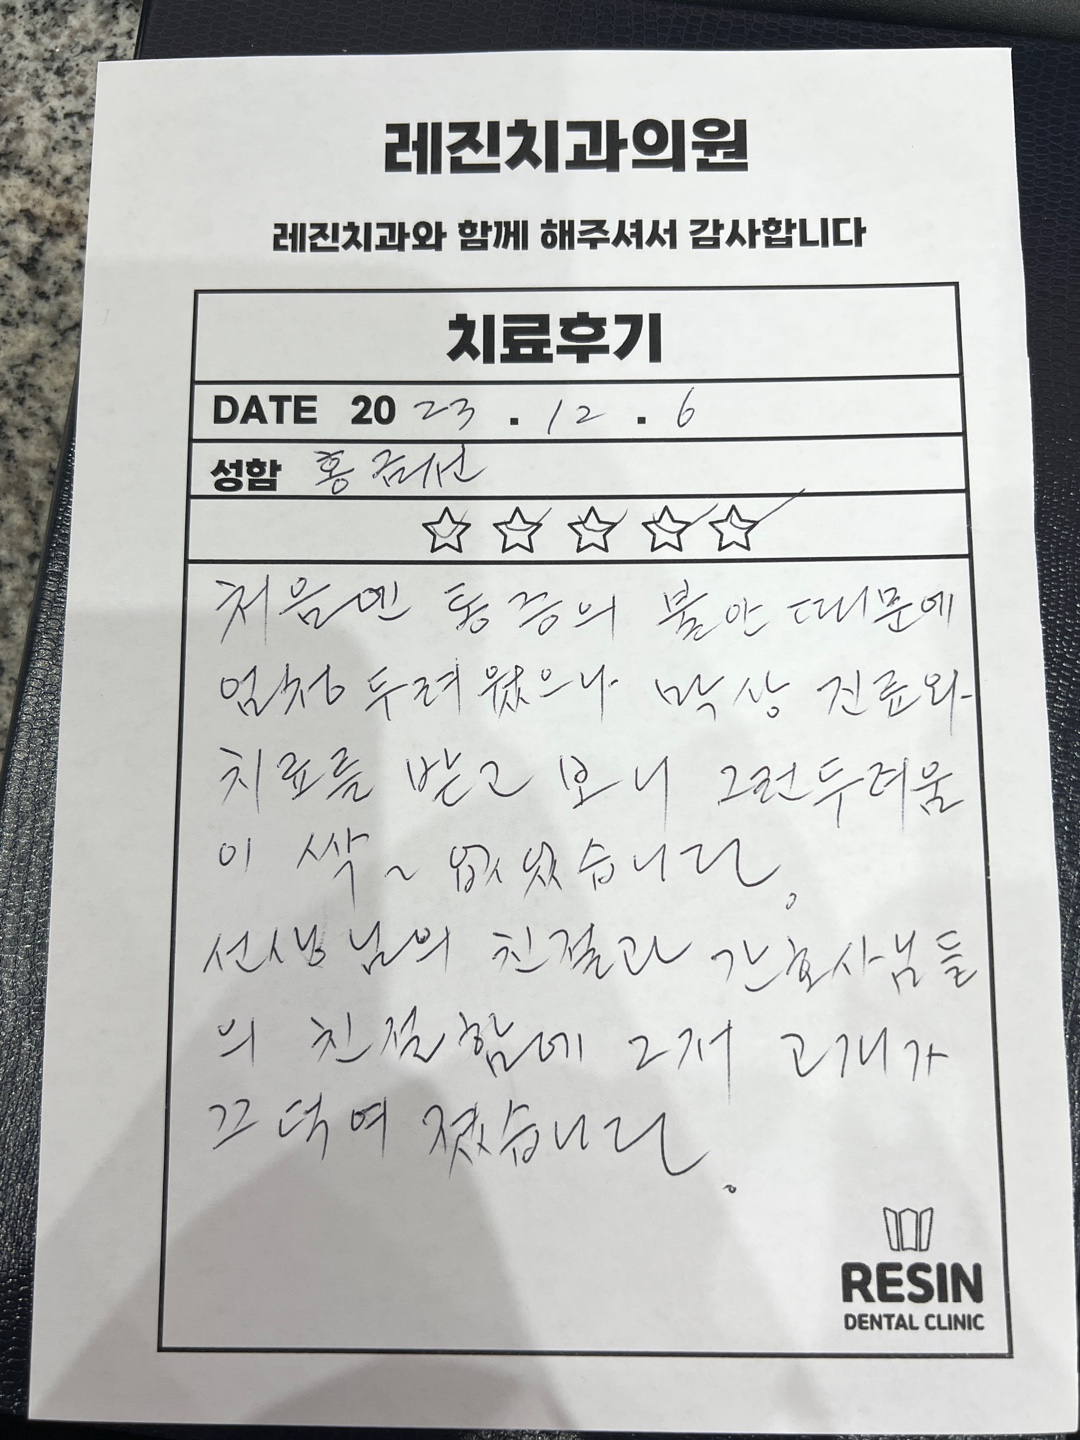 레진치과의원
레진치과와 함께 해주셔서 감사합니다
치료후기
DATE 2023.12.6
성함 홍금선
처음엔 통증의 불안 때문에
엄청 두려웠으나 막상 진료와
치료를 받고 보니 그런두려움
이 싹~ 없었습니다.
선생님의 친절과 간호사님들
의 친절함에 그저 고개가
끄덕여 졌습니다.
RESIN
DENTAL CLINIC